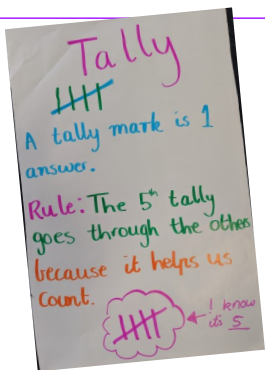 Tally
A tally mark is 1
answer.
Rule: The 5th tally
goes through the others
because it helps us
count.
I know
its 5